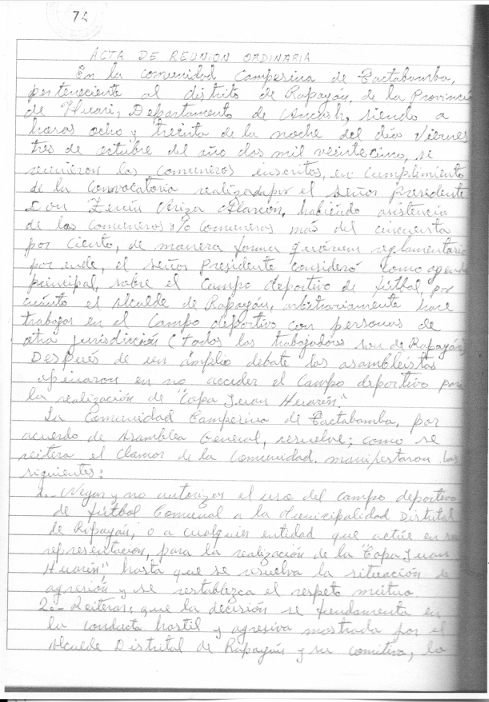 74
ACTA DE REUNION ORDINARIA
En la comunidad Campesina de Tactabamba,
perteneciente al distrito de Rapayán, de la Provincia
de Huari, Departamento de Ancash, siendo a
horas ocho y treinta de la noche del día Viernes
tres de octubre del año dos mil veinticinco, se
reunieron los comuneros inscritos, en cumplimiento
de la Convocatoria realizada por el señor presidente
Don Alarcón, habiendo asistencia
de los comuneros y/o comuneras más del cincuenta
por ciento, de manera forman quórum reglamentario
por ende, el señor Presidente consideró como agenda
principal, sobre el campo deportivo de fútbol, por
cuanto el alcalde de Rapayán, arbitrariamente hace
trabajos en el campo deportivo con personas de
otra jurisdicción (todos los trabajadores son de Rapayán)
Después de un ámplio debate los asambleistas
opinaron en no acceder el campo deportivo para
la realización de "Copa Juan Huarín."
La Comunidad Campesina de Tactabamba, por
acuerdo de Asamblea General, resuelve; como se
reitera el clamor de la Comunidad. manifestaron los
siguientes:
1.- Negar y no autorizar el uso del campo deportivo
de fútbol Comunal a la Municipalidad Distrital
de Rapayán, o a cualquier entidad que actúe en su
representación, para la realización de la "Copa Juan
Huarín" hasta que se resuelva la situación de
agresión y se restablezca el respeto mutuo
2.- Reiterar; que la decisión se fundamenta en
la conducta hostil y agresiva mostrada por el
Alcalde Distrital de Rapayán y su comitiva, la